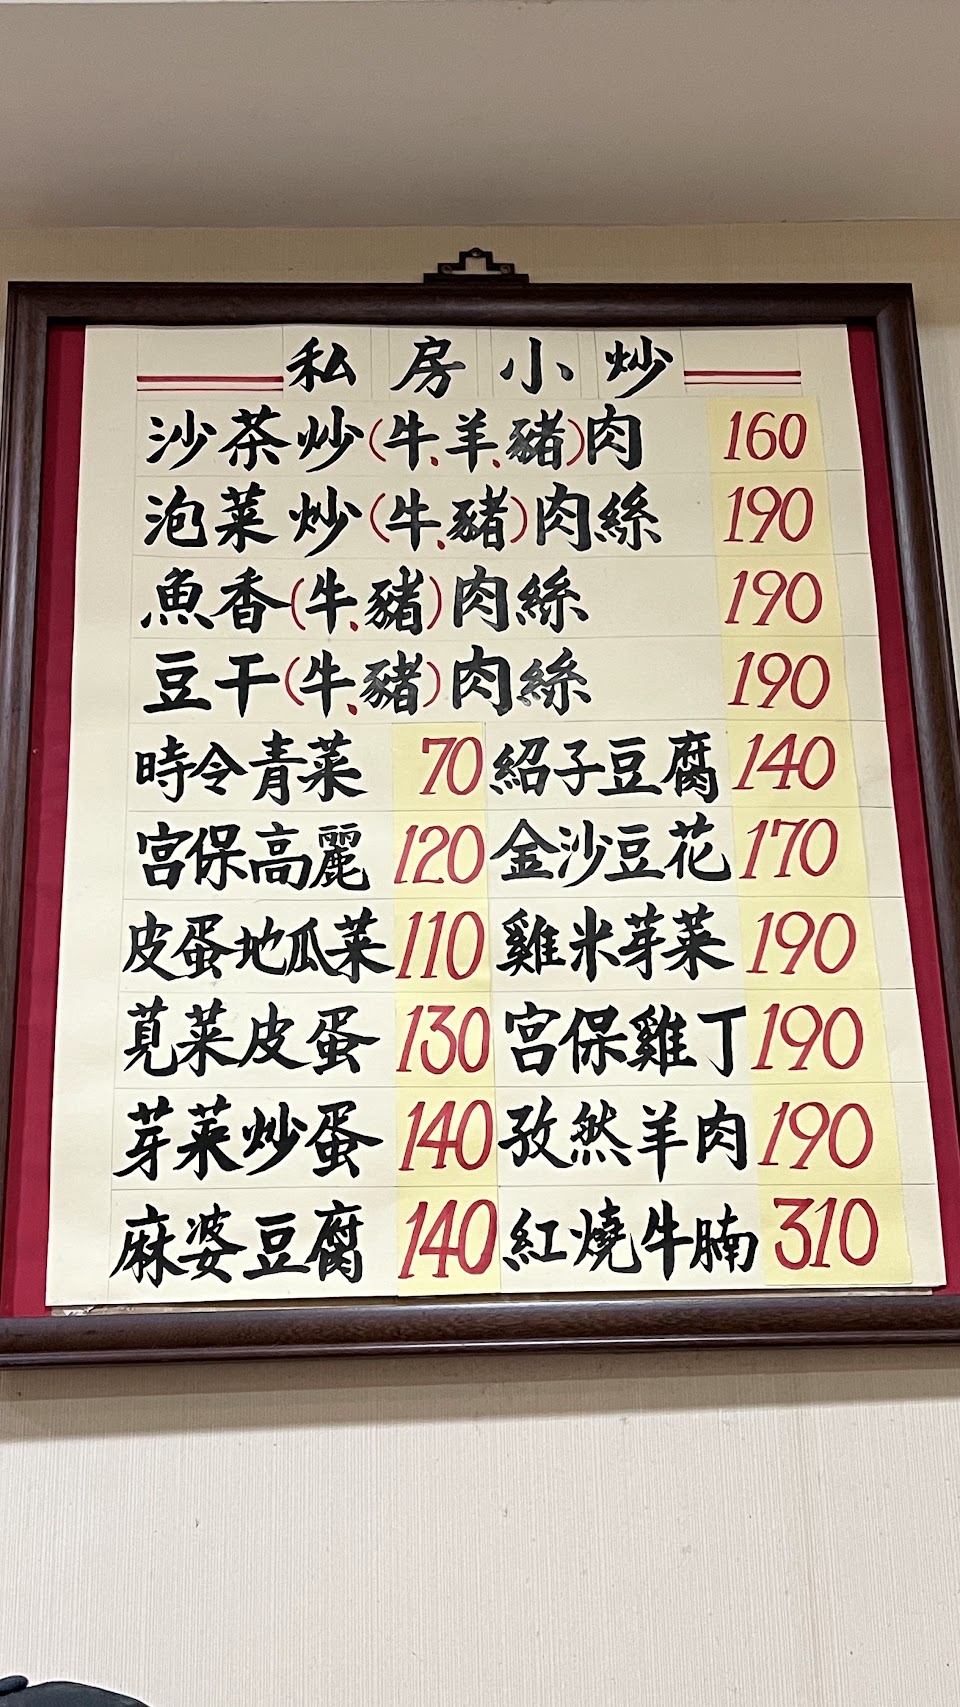 私房小炒
沙茶炒(牛、羊、豬)肉 160
泡菜炒(牛、豬)肉絲 190
魚香(牛、豬)肉絲 190
豆干(牛、豬)肉絲 190
時令青菜 70 紹子豆腐 140
宮保高麗 120 金沙豆花 170
皮蛋地瓜菜 110 雞米芽菜 190
莧菜皮蛋 130 宮保雞丁 190
芽菜炒蛋 140 孜然羊肉 190
麻婆豆腐 140 紅燒牛腩 310